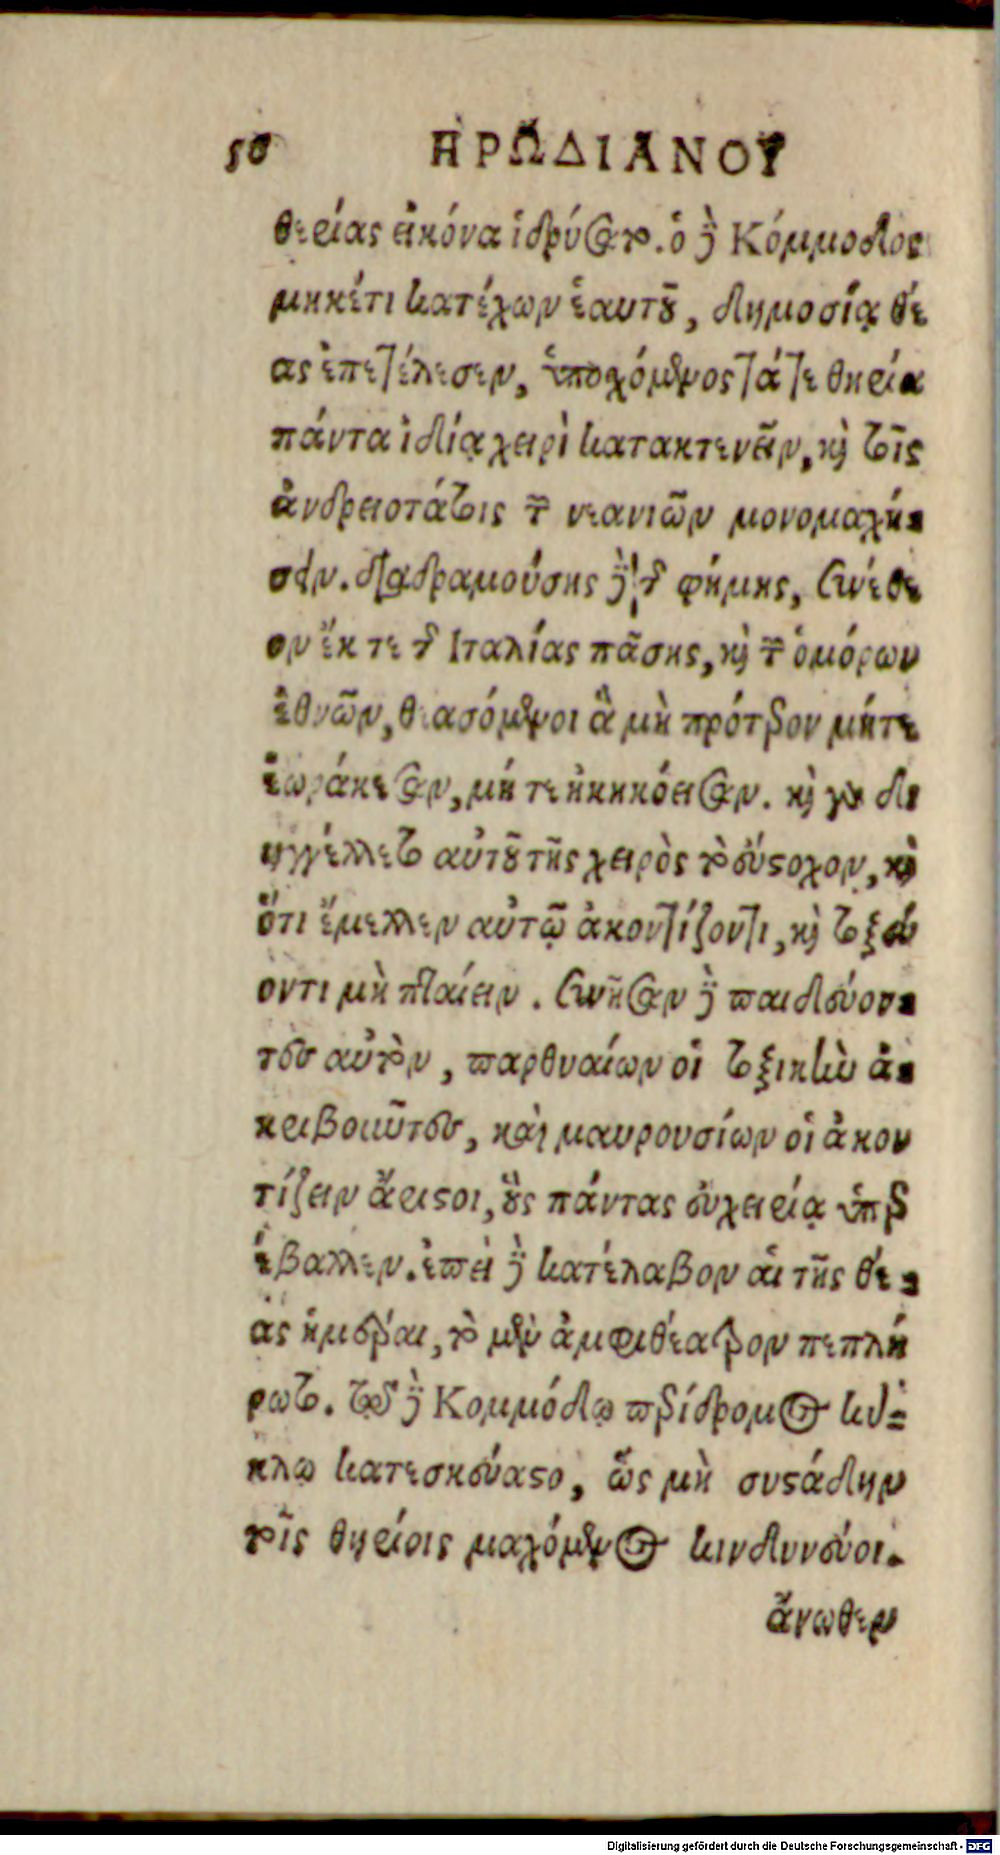 50 ΗΡΩΔΙΑΝΟΥ
θερίας εἰκόνα ἱδρύσατο. ὁ δὲ Κόμμοδος
μηκέτι κατέχων ἑαυτοῦ, δημοσίᾳ θέ
ας ἐπετέλεσεν, ὑποσχόμενος τά τε θηρία
πάντα ἰδίᾳ χειρὶ κατακτενεῖν, καὶ τοῖς
ἀνδρειοτάτοις τῶν νεανιῶν μονομαχή-
σειν. διαδραμούσης δὲ τῆς φήμης, συνέθε
ον ἔκ τε τῆς Ιταλίας πάσης, καὶ τῶν ὁμόρων
ἐθνῶν, θεασόμενοι ἃ μὴ πρότερον μήτε
ἑωράκεσαν, μήτε ἠκηκόεισαν. καὶ γὰρ δι
ηγγέλλετο αὐτοῦ τῆς χειρὸς τὸ εὔστοχον, καὶ
ὅτι ἔμελλεν αὐτῷ ἀκοντίζοντι, καὶ τοξεύ
οντι μὴ πταίειν. συνῆσαν δὲ παιδεύον-
τες αὐτὸν, παρθυαίων οἱ τοξικὴν ἀ-
κριβοῦντες, καὶ μαυρουσίων οἱ ἀκον
τίζειν ἄριστοι, οὓς πάντας εὐχειρίᾳ ὑπερ
έβαλλεν. ἐπεὶ δὲ κατέλαβον αἱ τῆς θέ-
ας ἡμέραι, τὸ μὲν ἀμφιθέατρον πεπλή
ρωτο. τῷ δὲ Κομμόδῳ περίδρομος κύ-
κλῳ κατεσκεύαστο, ὡς μὴ συστάδην
τοῖς θηρίοις μαχόμενος κινδυνεύοι.
ἄνωθεν
Digitalisierung gefördert durch die Deutsche Forschungsgemeinschaft - DFG